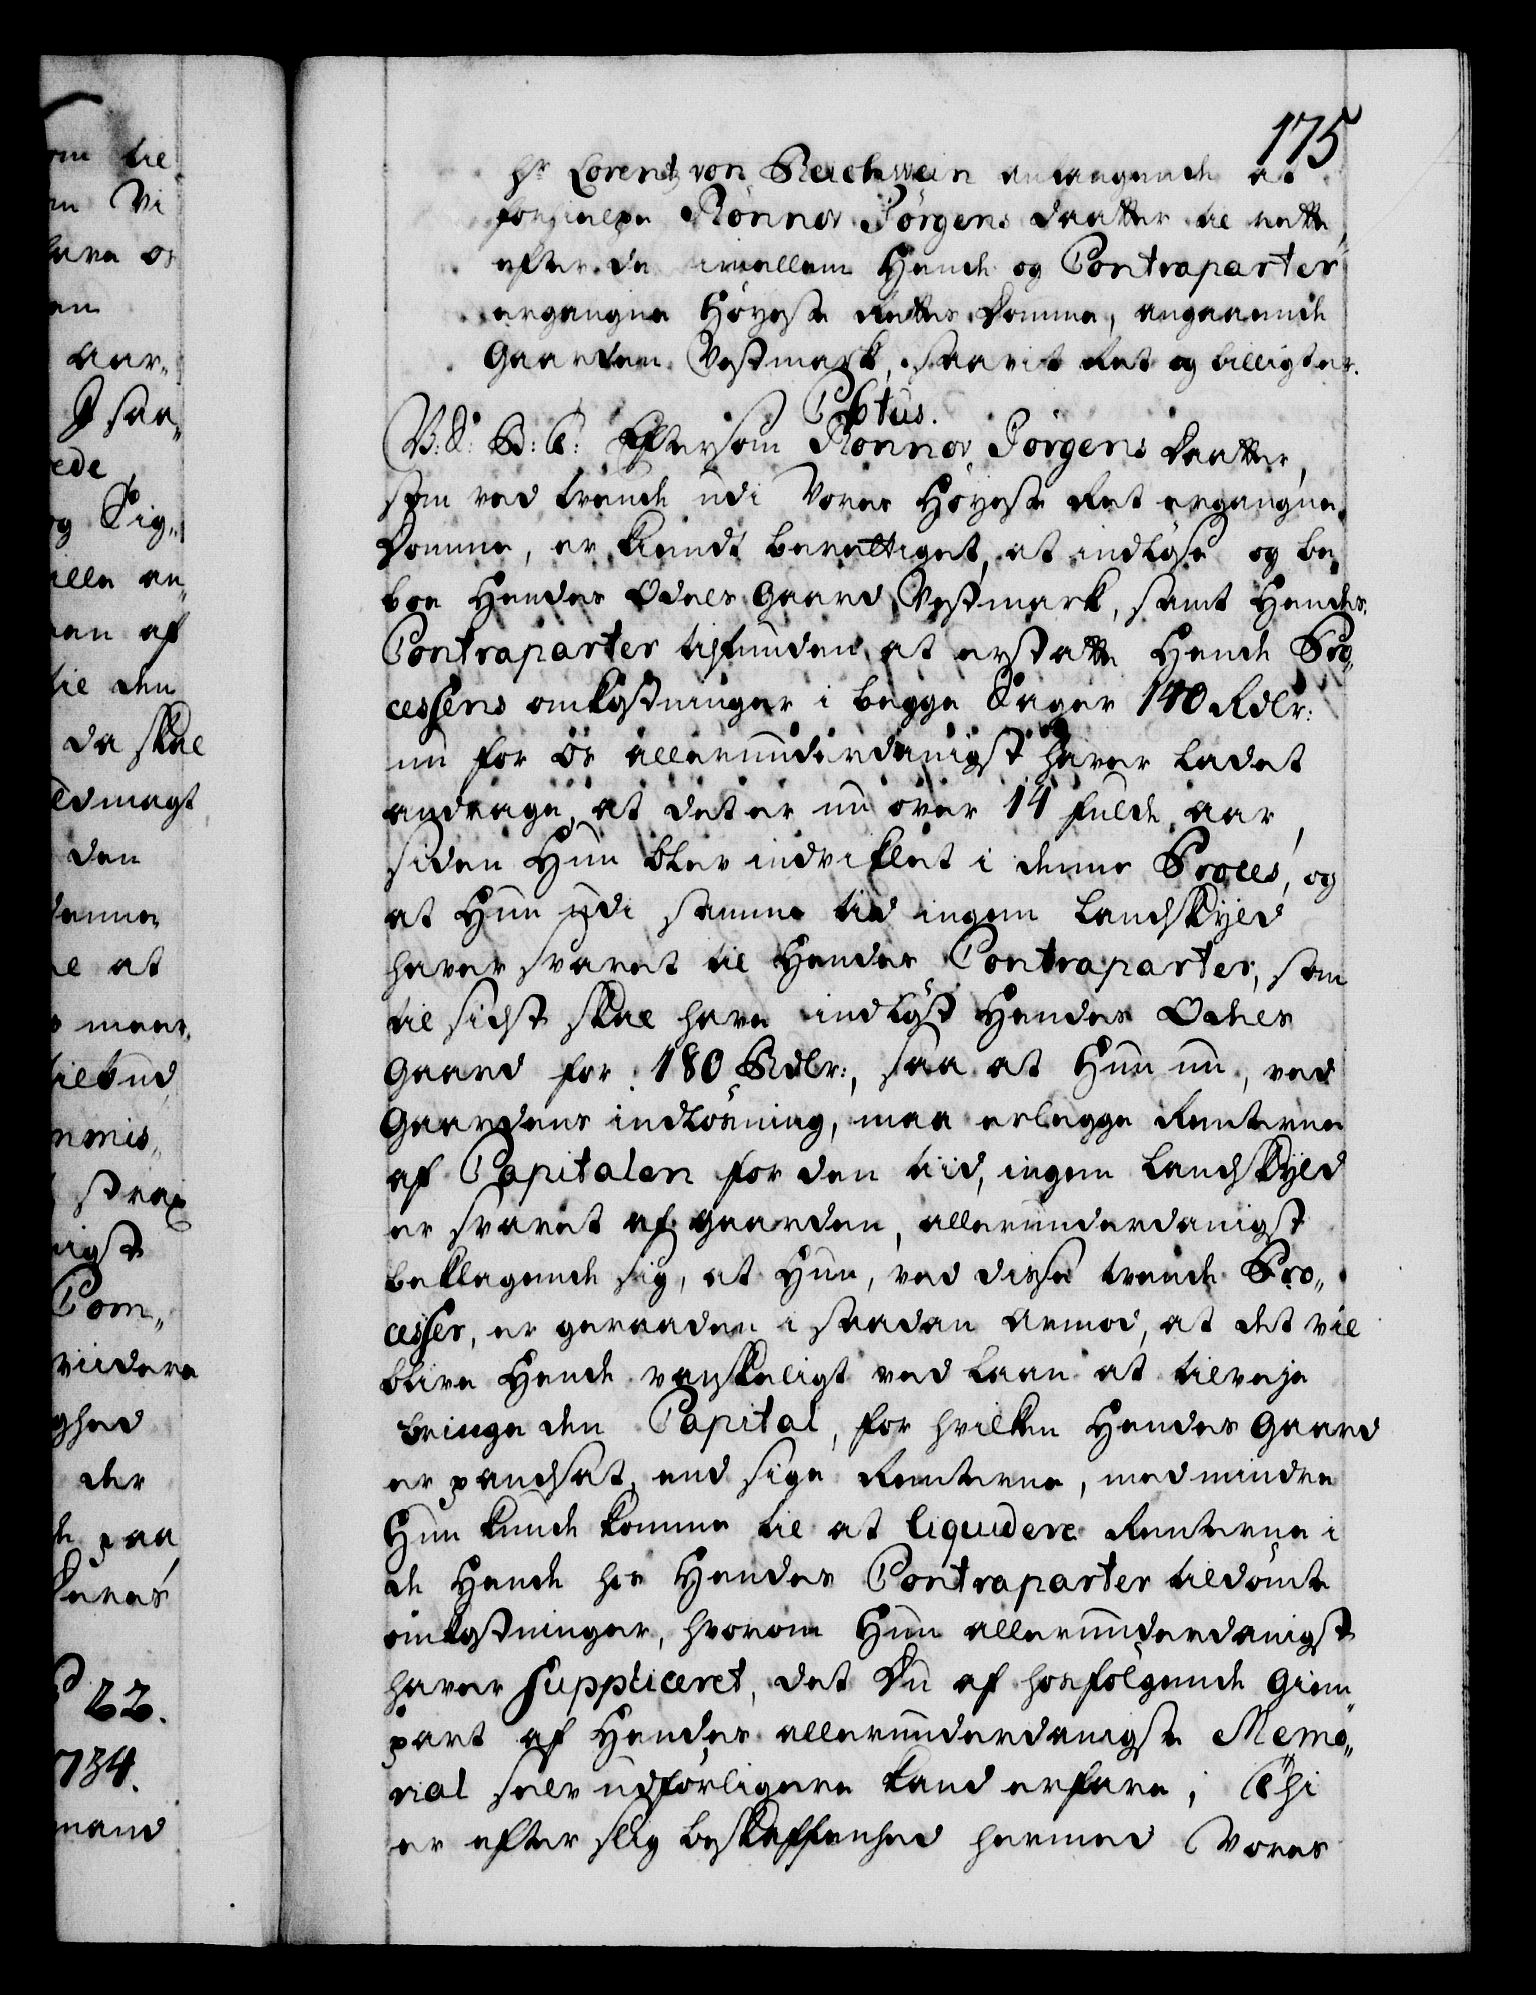 om tie
en Vi
have os
en
aar-
I saa-
rede
og Sig-
ille an-
en af
tie den
da skal
ldmagt
den
denne
e at
meer
tilbud
mmis-
strax
nigst
Com-
viidere
ghed
der
de paa
deres
22.
1734.
mand
175
Hr Lorentz von Reichwein anlangende at
forhielpe Rønnov Jørgens Daatter til rette,
efter de imellem Hende og Contraparter
ergangne Høyeste Rettes Domme, angaaende
Gaarden Vestmark, saavit Ret og billigt er.
C Ptus.
V: S: B: C: Eftersom Rønnov Jørgens Daatter,
som ved tvende udi Vores Høyeste Ret ergangne
Domme, er kiendt berettiget, at indløse og be-
boe Hendes Odels Gaard Vestmark, samt Hendes
Contraparter tilfunden, at erstatte Hende Pro-
cessens omkostninger i begge Sager 140 Rdlr:
nu for os allerunderdanigst haver ladet
andrage, at det er nu over 14 fulde aar,
siden Hun blev indviklet i denne Proces, og
at Hun udi samme tid ingen Landskyld
haver svaret til Hendes Contraparter, som
til sidst skal have indløst Hendes Odels
Gaard for 180 Rdlr:, saa at Hun nu, ved
Gaardens indløsning, maa erlegge Renterne
af Capitalen for den tiid, ingen Landskyld
er svaret af gaarden, allerunderdanigst
beklagende sig, at Hun, ved disse tvende Pro-
cesser, er geraaden i saadan armod, at det vil
blive Hende vanskeligt ved Laan at tilveje
bringe den Capital, for hvilken Hendes Gaard
er pandsat, end sige Renterne, med mindre
Hun kunde komme til at liqvidere Renterne i
de Hende hos Hendes Contraparter tildømte
omkostninger, hvorom Hun allerunderdanigst
haver suppliceret, det Du af hosfølgende Gien-
part af Hendes allerunderdanigste Memo-
rial selv udførligere kand erfare; Thi
er efter slig beskaffenhed hermed Vores